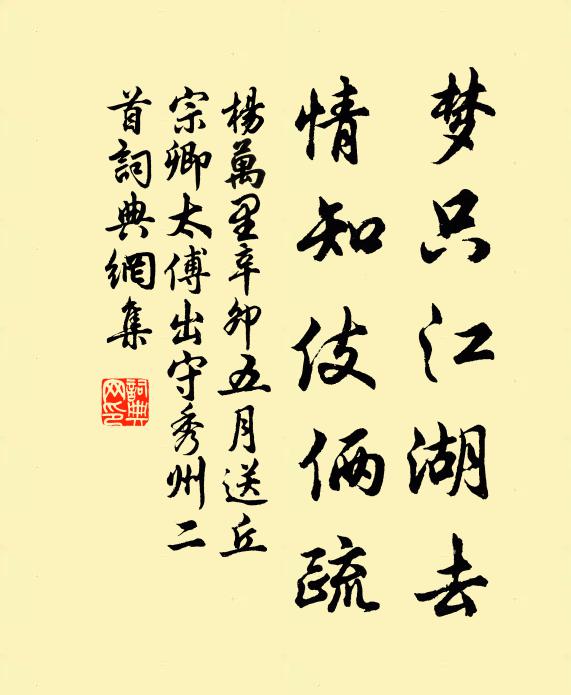 梦只江湖去
情知伎俩疏
楊萬里辛卯五月送丘
宗卿太傅出守秀州二
首詞典網集
詞典
网印